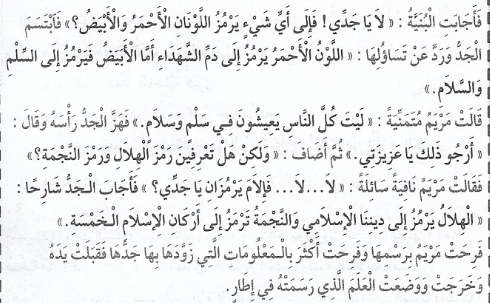 فَأَجَابَتِ الْبُنَيَّةُ : « لَا يَا جَدِّي! فَإِلَى أَيِّ شَيْءٍ يَرْمُزُ اللَّوْنَانِ الْأَحْمَرُ وَالْأَبْيَضُ؟» فَابْتَسَمَ
الْجَدُّ وَرَدَّ عَنْ تَسَاؤُلِهَا : « اللَّوْنُ الْأَحْمَرُ يَرْمُزُ إِلَى دَمِّ الشُّهَدَاءِ أَمَّا الْأَبْيَضُ فَيَرْمُزُ إِلَى السِّلْمِ
وَالسَّلَامِ.»
قَالَتْ مَرْيَمُ مُتَمَنِّيَةً : « لَيْتَ كُلَّ النَّاسِ يَعِيشُونَ فِي سِلْمٍ وَسَلَامٍ.» فَهَزَّ الْجَدُّ رَأْسَهُ وَقَالَ :
« أَرْجُو ذَلِكَ يَا عَزِيزَتِي.» ثُمَّ أَضَافَ : « وَلَكِنْ هَلْ تَعْرِفِينَ رَمْزَ الْهِلَالِ وَرَمْزَ النَّجْمَةِ؟»
فَقَالَتْ مَرْيَمُ نَافِيَةً سَائِلَةً : « لَا...لَا... فَإِلَامَ يَرْمُزَانِ يَا جَدِّي؟ » فَأَجَابَ الْجَدُّ شَارِحًا :
« الْهِلَالُ يَرْمُزُ إِلَى دِينِنَا الْإِسْلَامِي وَالنَّجْمَةُ تَرْمُزُ إِلَى أَرْكَانِ الْإِسْلَامِ الْخَمْسَةِ.»
فَرِحَتْ مَرْيَمُ بِرَسْمِهَا وَفَرِحَتْ أَكْثَرَ بِالْمَعْلُومَاتِ الَّتِي زَوَّدَهَا بِهَا جَدُّهَا فَقَبَّلَتْ يَدَهُ
وَخَرَجَتْ وَوَضَعَتْ الْعَلَمَ الَّذِي رَسَمَتْهُ فِي إِطَارٍ.